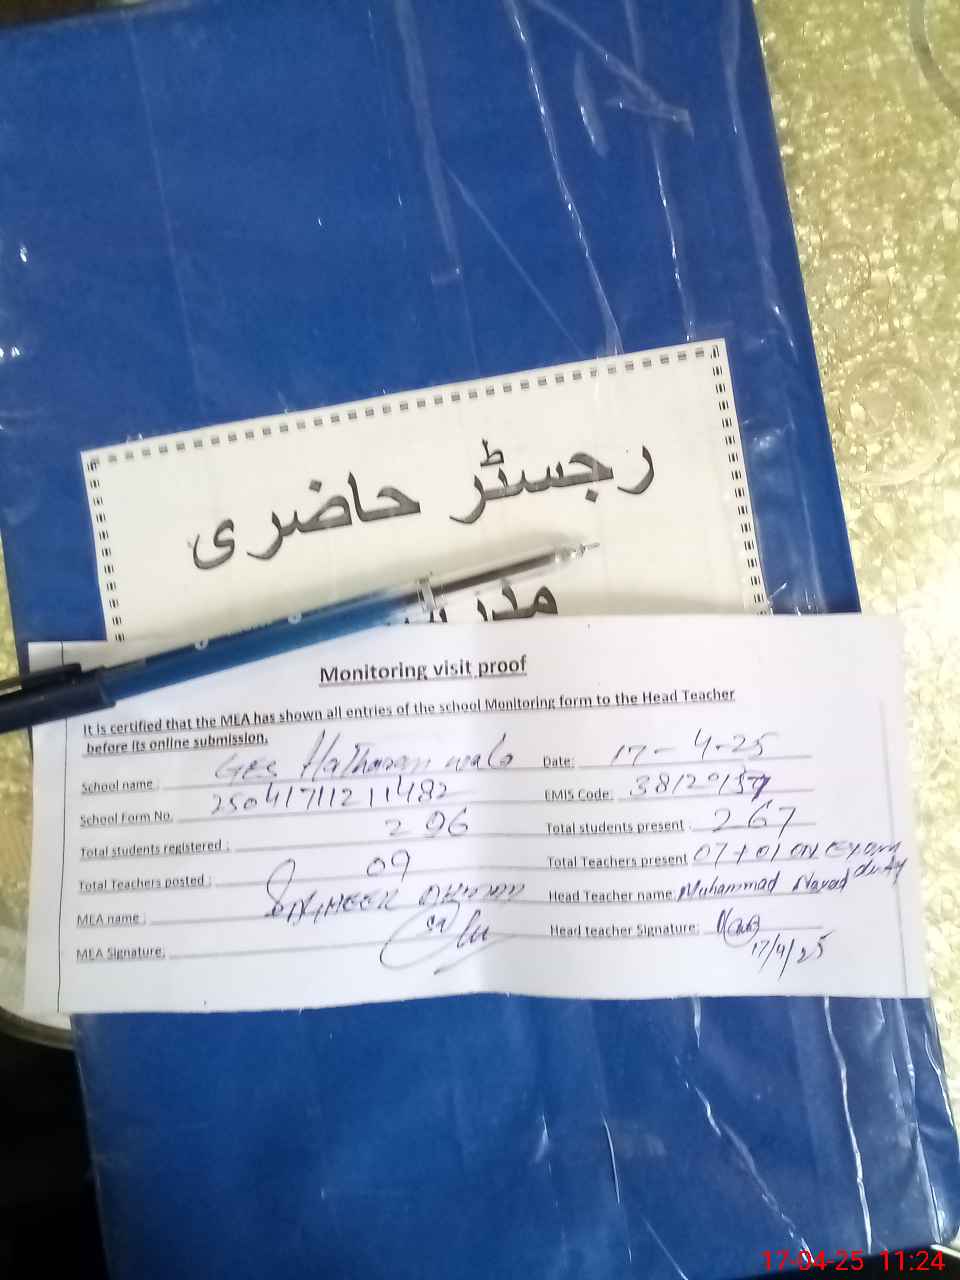 رجسٹر حاضری
Monitoring visit proof
It is certified that the MEA has shown all entries of the school Monitoring form to the Head Teacher
before its online submission.
School name : GES Date: 17-4-25
School Form No. 2504171112114 EMIS Code: 381201
Total students registered : 296 Total students present : 267
Total Teachers posted : 09 Total Teachers present 07+01 ON EXAM duty
MEA name : Head Teacher name: Muhammad
MEA Signature: Head teacher Signature:
17/4/25
17-04-25 11:24